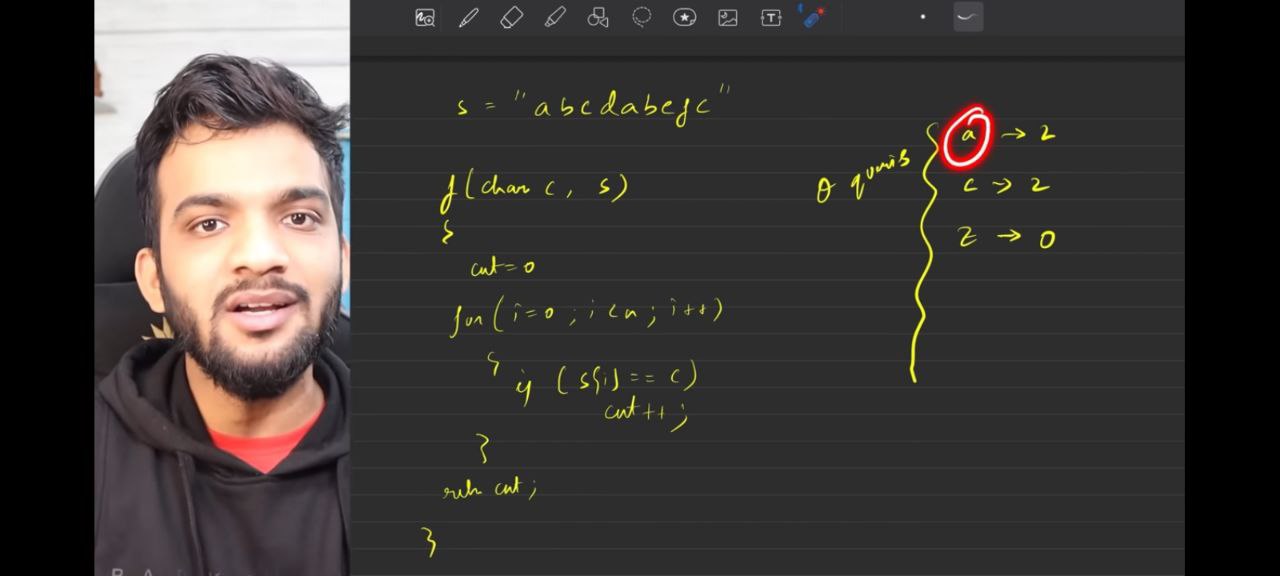 s = "abcdabefc"
f(char c, s)
{
cnt=0
for(i=0 ; i<n ; i++)
{
if (s[i] == c)
cnt++;
}
return cnt;
}
Q queries
{ a → 2
c → 2
z → 0
T